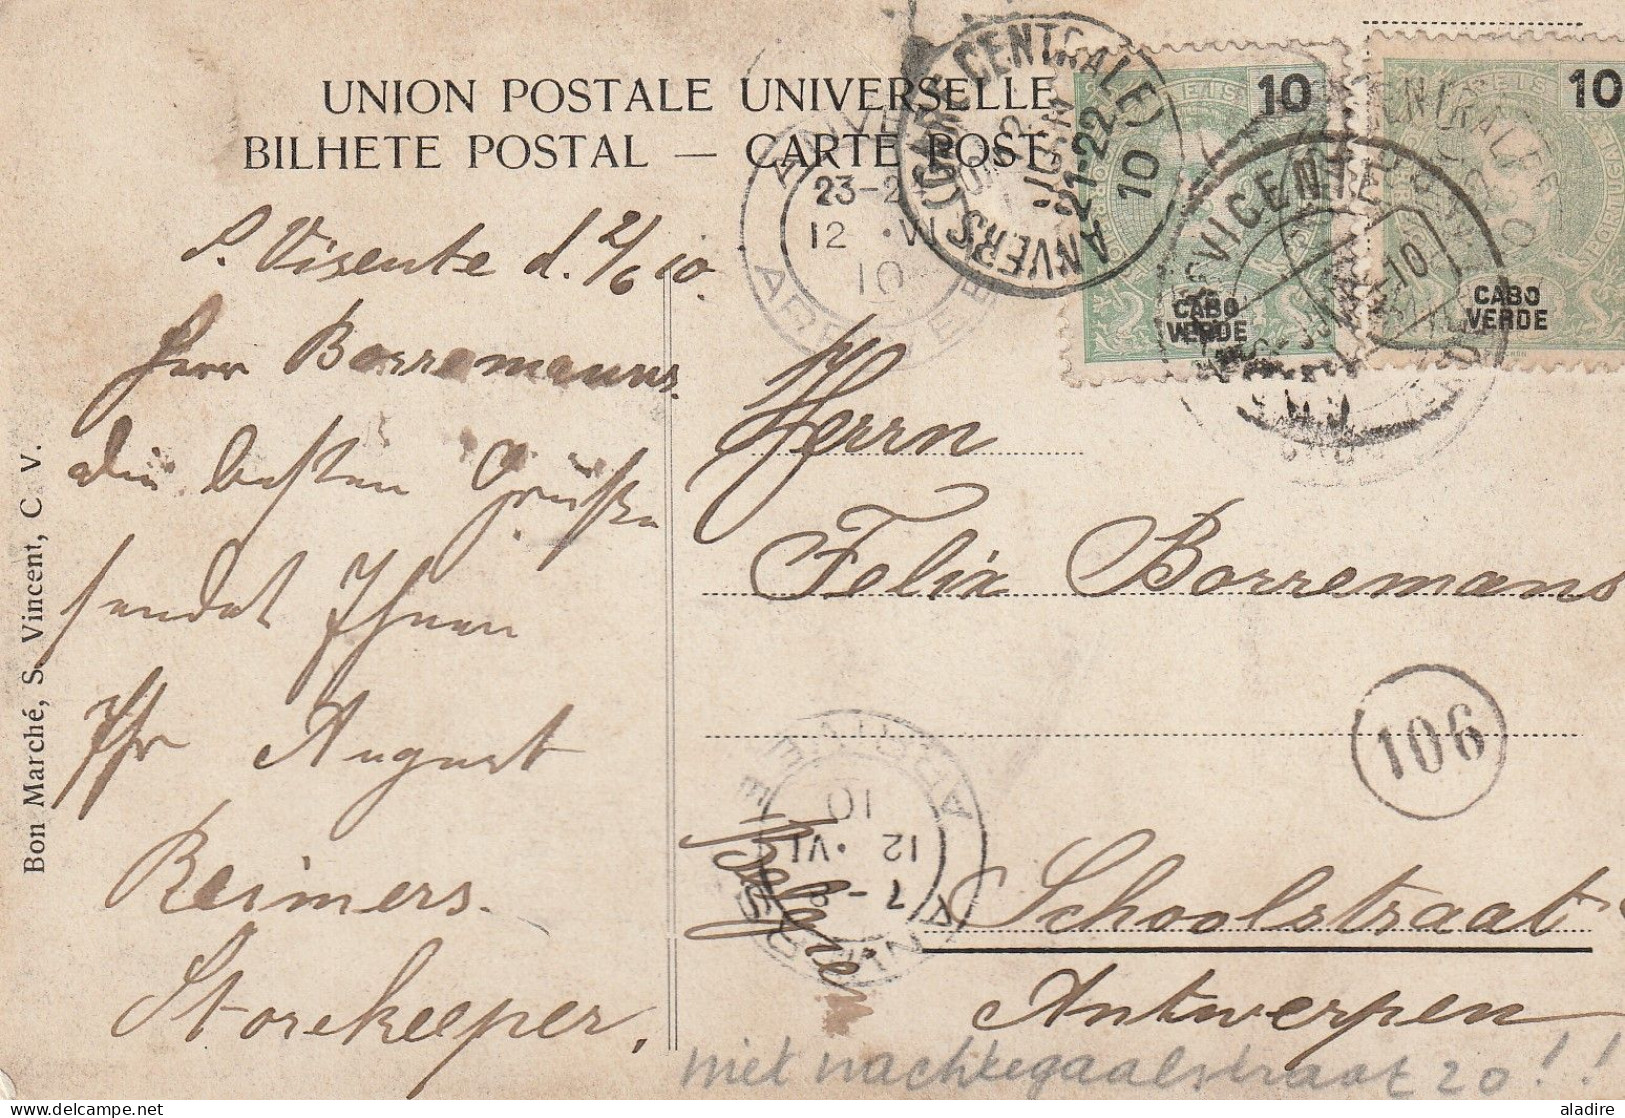 UNION POSTALE UNIVERSELLE
BILHETE POSTAL — CARTE POST
10
CABO
VERDE
10
CABO
VERDE
ANVERS (GARE CENTRALE)
21-22
10
23-2
12 · VI
10
S. VICENT
S. Visente d. 2/6 10.
Herr Borremanns.
die besten Grüße
sendet Ihnen
Ihr August
Reimers.
Storekeeper.
Bon Marché, S. Vincent, C. V.
Herrn
Felix Borremans
106
ANVERS
7-8
12 · VI
10
Schoolstraat
Belgien
Antwerpen
niet nachtegaalstraat 20!!
aladire